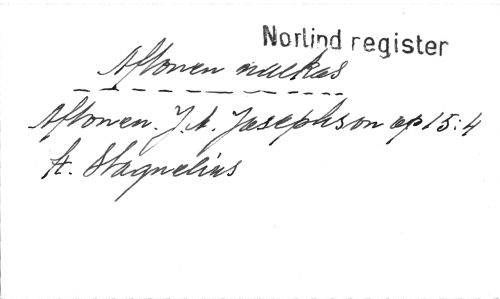 Norlind register
Aftonen nalkas
Aftonen. J. A. Josephson op 15:4
t. Stagnelius